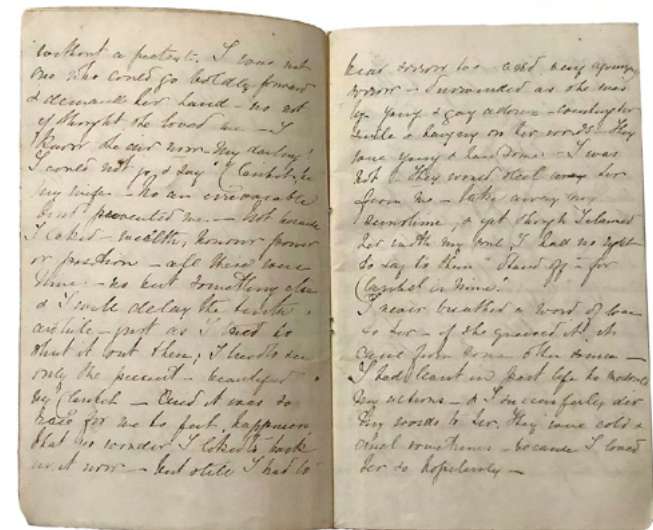 without a protest. I was not
one who could go boldly forward
& demand her hand - no not
if I thought she loved me - I
know she did now - my darling!
I could not go & say "Claribel, be
my wife - no an irrevocable
prevented me. - Not because
I lacked - wealth, honour power
or position - all these were
mine - no but something else
& I will delay the truth
awhile - just as I used to
shut it out then; I used to see
only the present - beautiful
by - And it was so
for me to feel, happiness
that no wonder I liked to bask
in it now - but still I had to
bear sorrow too - and very
sorrow - Surrounded as she was
by young & gay - courting her
smile & hanging on her words - They
were young & handsome - I was
not - They would steal away her
from me - take away my
sunshine, & yet though I claimed
her in my soul, I had no right
to say to them "Stand off - for
Claribel is mine."
I never breathed a word of love
to her - if she guessed it, it
came from some other source -
I had learnt in past life to moderate
my actions - & I successfully did
my words to her. They were cold &
cruel sometimes - because I loved
her so hopelessly -